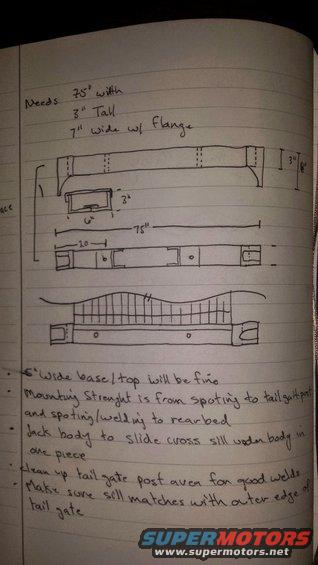 Needs 75" with
3" Tall
7" wide w/ flange
3"
8"
3"
6"
75"
20
5" wide base/top will be fine
Mounting Strenght is from spoting to tailgate post
and spoting/welding to rear bed
Jack body to slide cross sill under body in
one piece
Clean up tail gate post area for good welds
Make sure sill matches with outer edge of
tail gate
SUPERMOTORS
www.supermotors.net